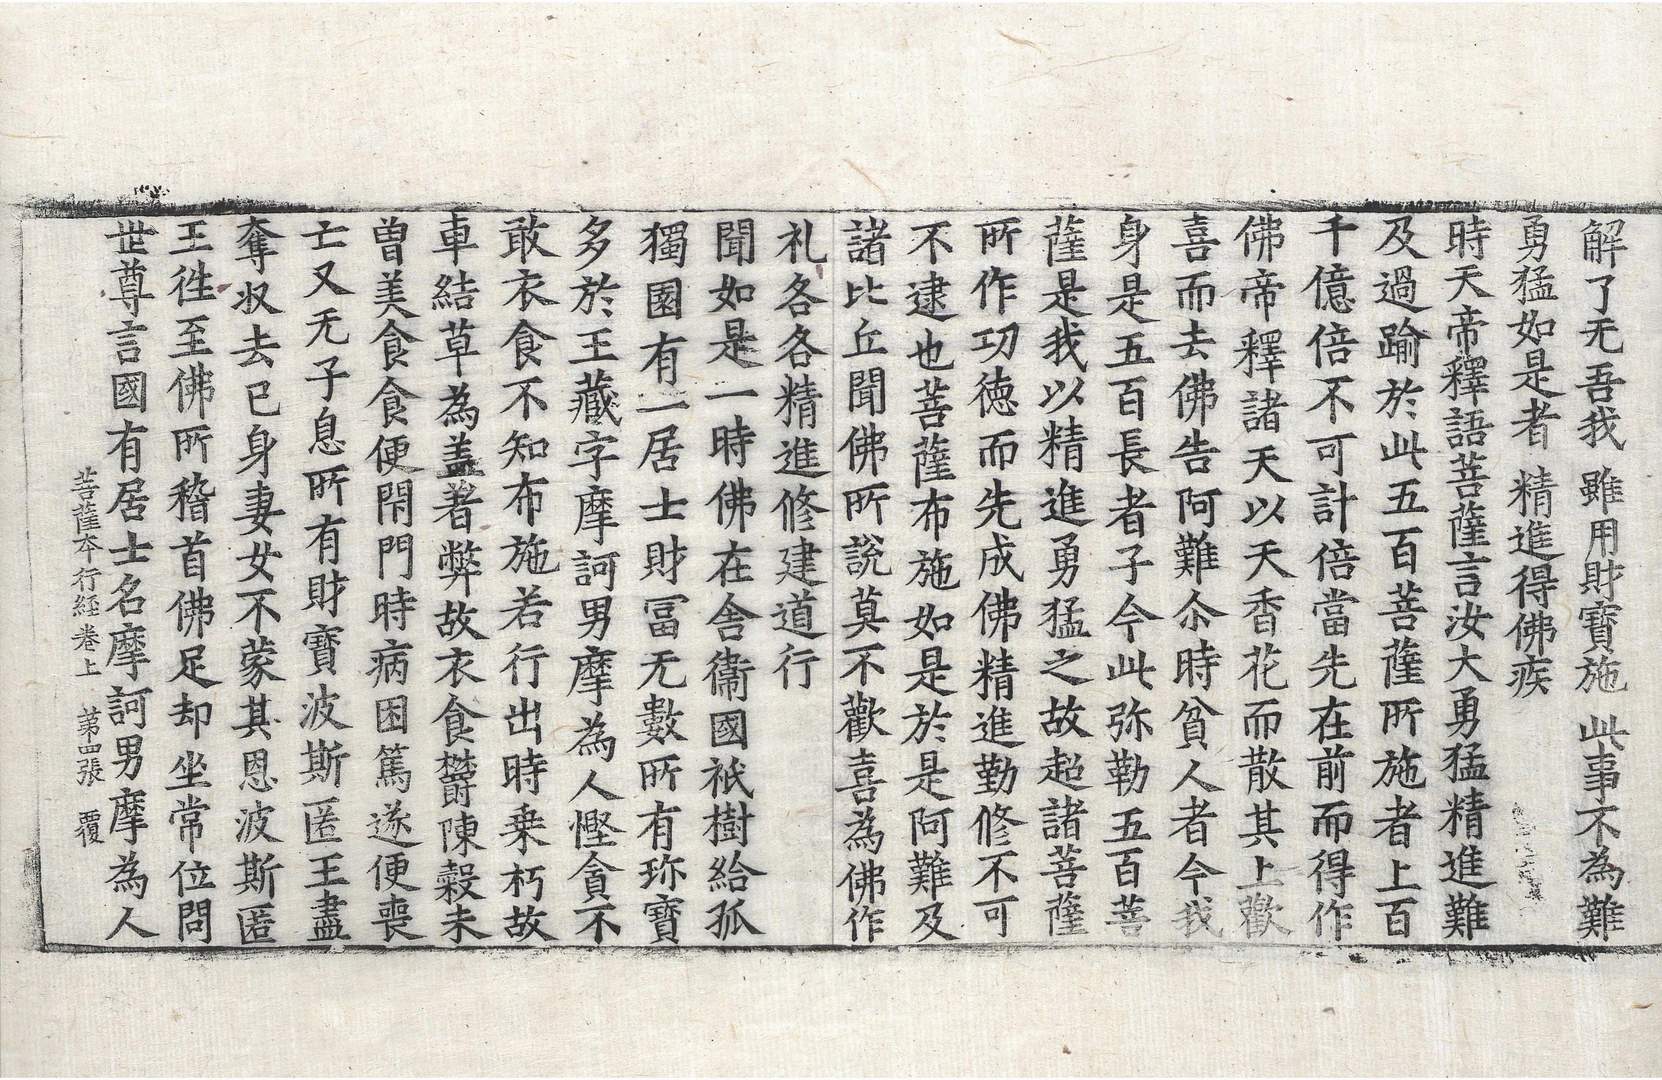 解了无吾我 雖用財寶施 此事不為難
勇猛如是者 精進得佛疾
時天帝釋語菩薩言汝大勇猛精進難
及過踰於此五百菩薩所施者上百
千億倍不可計倍當先在前而得作
佛帝釋諸天以天香花而散其上歡
喜而去佛告阿難尒時貧人者今我
身是五百長者子今此弥勒五百菩
薩是我以精進勇猛之故超諸菩薩
所作功德而先成佛精進勤修不可
不逮也菩薩布施如是於是阿難及
諸比丘聞佛所說莫不歡喜為佛作
礼各各精進修建道行
聞如是一時佛在舍衞國祇樹給孤
獨園有一居士財冨无數所有珎寶
多於王藏字摩訶男摩為人慳貪不
敢衣食不知布施若行出時乗朽故
車結草為盖著弊故衣食欝陳糓未
曽美食食便閇門時病困篤遂便喪
亡又无子息所有財寶波斯匿王盡
奪収去已身妻女不蒙其恩波斯匿
王徃至佛所稽首佛足却坐常位問
世尊言國有居士名摩訶男摩為人
菩薩本行経卷上 苐四張 覆